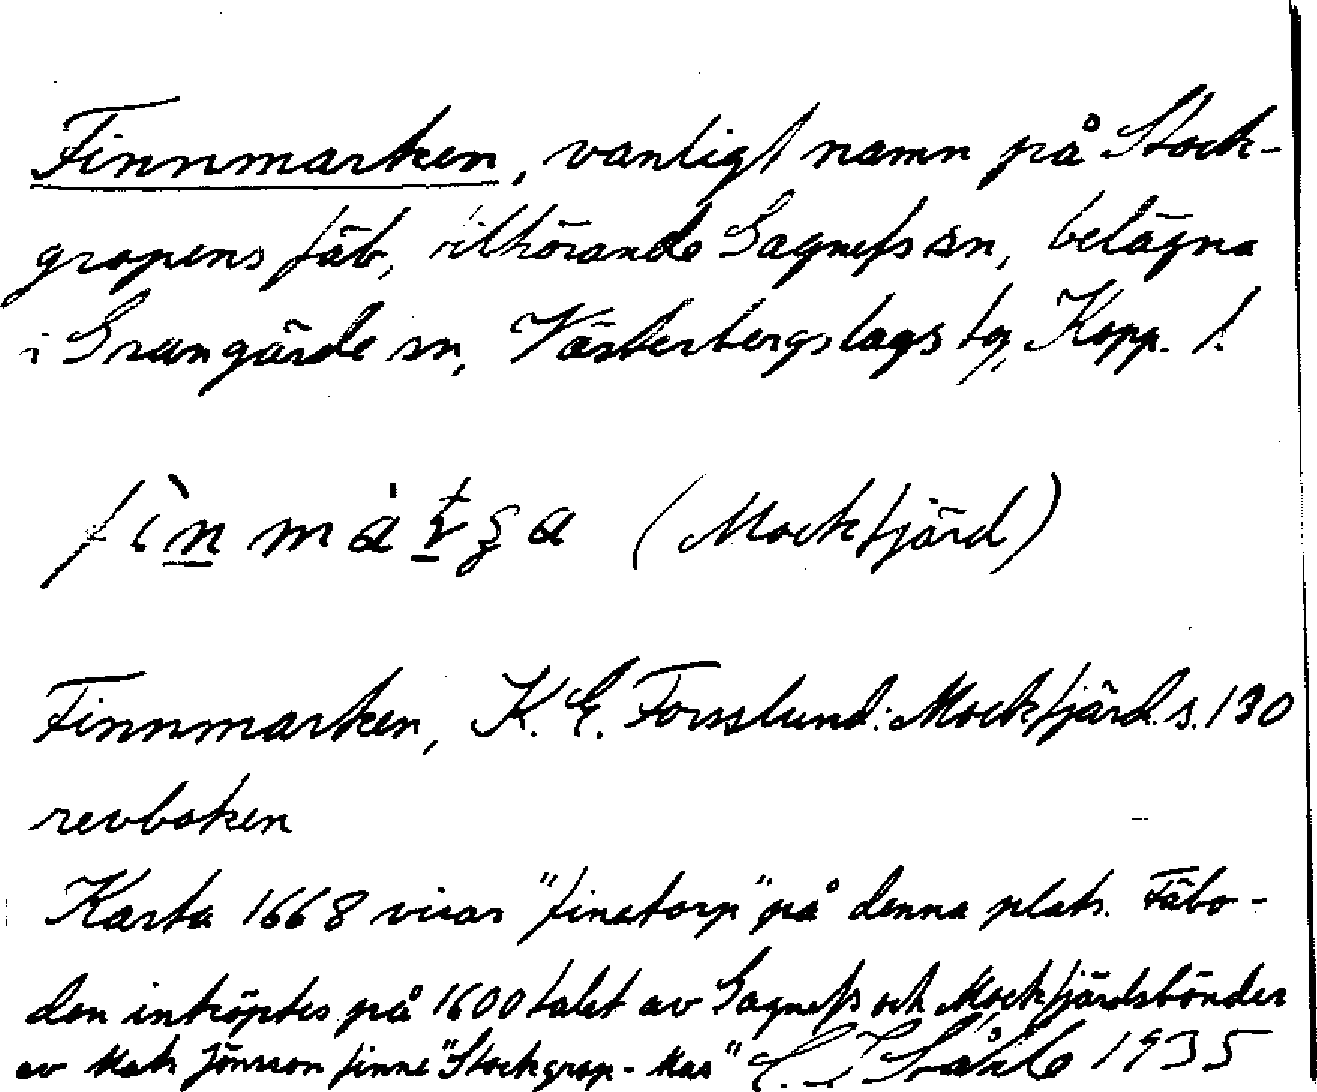 Finnmarken, vanligt namn på Stock-
gropens fäb, tillhörande Gagnefs sn, belägna
i Grangärde sn, Västerbergslags tg, Kopp. l.
(Mockfjärd)
Finnmarken, K. E. Forsslund: Mockfjärd. s. 130
revboken
Karta 1668 visar "finetorp" på denna plats. Fäbo-
den inköptes på 1600 talet av Gagnefs och Mockfjärdsbönder
av Mats Jönsson finne "Stockgrop-Mas" Ståhle 1935